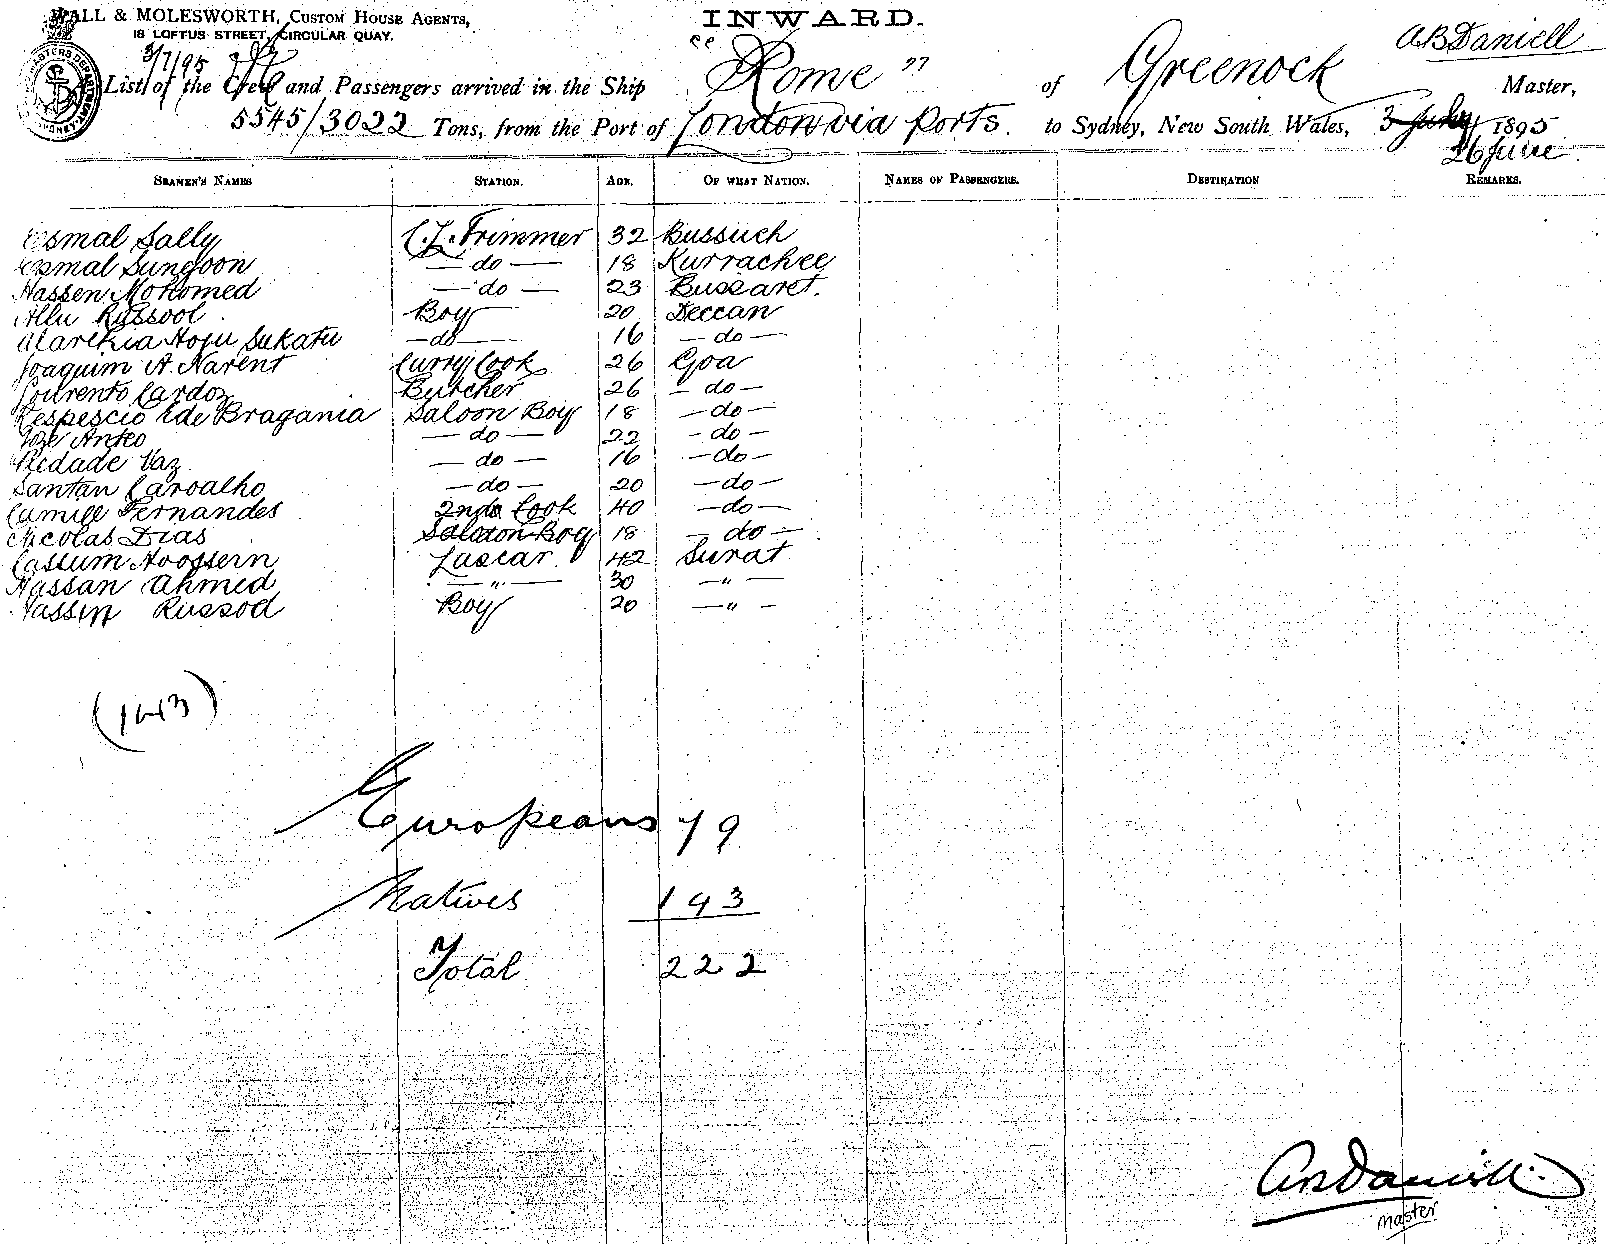 WALL & MOLESWORTH, CUSTOM HOUSE AGENTS,
18 LOFTUS STREET, CIRCULAR QUAY.
INWARD.
3/7/95
A B Daniell
List of the Crew and Passengers arrived in the Ship "Rome" of Greenock Master,
5545/3022 Tons, from the Port of London via Ports to Sydney, New South Wales, 3 July 1895
26 June
SEAMEN'S NAMES STATION. AGE. OF WHAT NATION. NAMES OF PASSENGERS. DESTINATION REMARKS.
Esmal Sally C.L. Trimmer 32 Bussuch
Esmal Sungoon — do — 18 Kurrachee
Hassen Mohomed — do — 23 Bussaret.
Allu Russool Boy 20 Deccan
Hoju Sukatu — do — 16 — do —
Joaquim A. Narent Curry Cook 26 Goa
Lourento Cardoz Butcher 26 — do —
Respescio Ede Bragania Saloon Boy 18 — do —
Joze Anteo — do — 22 — do —
Piedade Vaz — do — 16 — do —
Santan Carvalho — do — 20 — do —
Camill Fernandes 2nd Cook 40 — do —
Nicolas Dias Saloon Boy 18 — do —
Cassum Hoossein Lascar 42 Surat
Hassan Ahmed — " — 30 — " —
Hassin Russod Boy 20 — " —
(143)
Europeans 79
Natives 143
Total 222
A B Daniell
Master